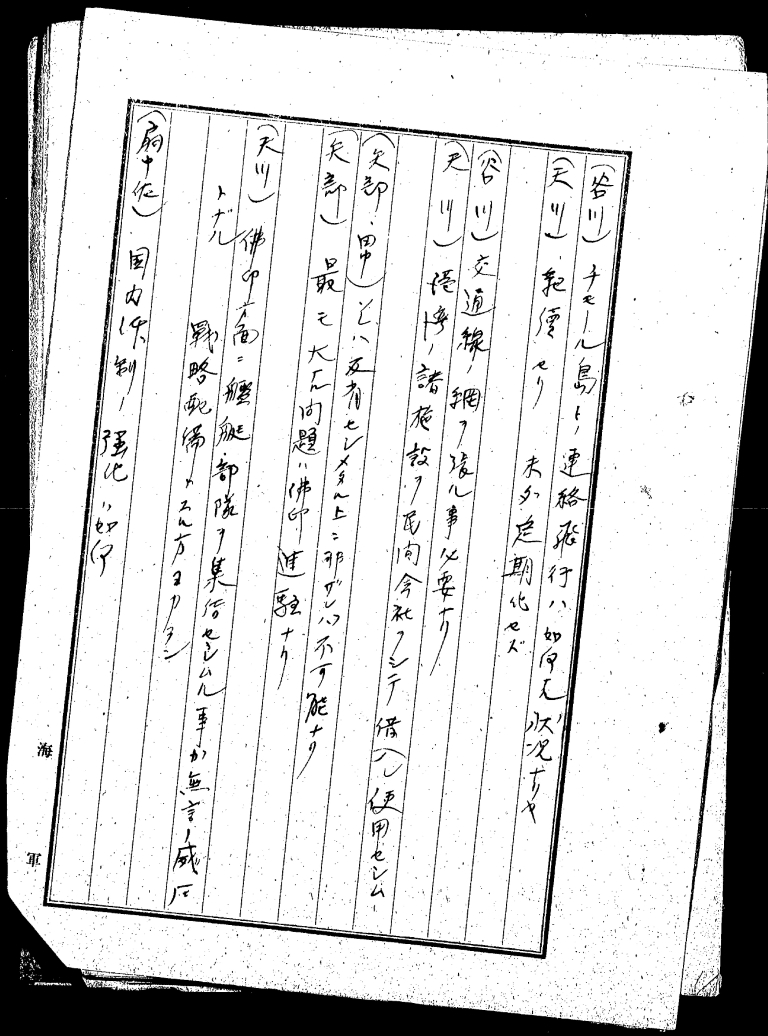 (谷川) チモール島トノ連絡飛行ハ如何ナル状況ナリヤ
(天川)
未ダ定期化セズ
(谷川) 交通線ノ網ヲ張ル事必要ナリ
(天川) 諸施設ヲ民間会社ヲシテ借入レ使用セシム
(矢部・田中) ソハ反省セシメタル上ニ非ザレバ不可能ナリ
(矢部) 最モ大ナル問題ハ佛印進駐ナリ
(天川) 佛印方面ニ艦艇部隊ヲ集結セシムル事が無言ノ威圧
トナル
戦略配備カヘル方ヨカラン
(扇中佐) 国内体制ノ強化ハ如何
海軍